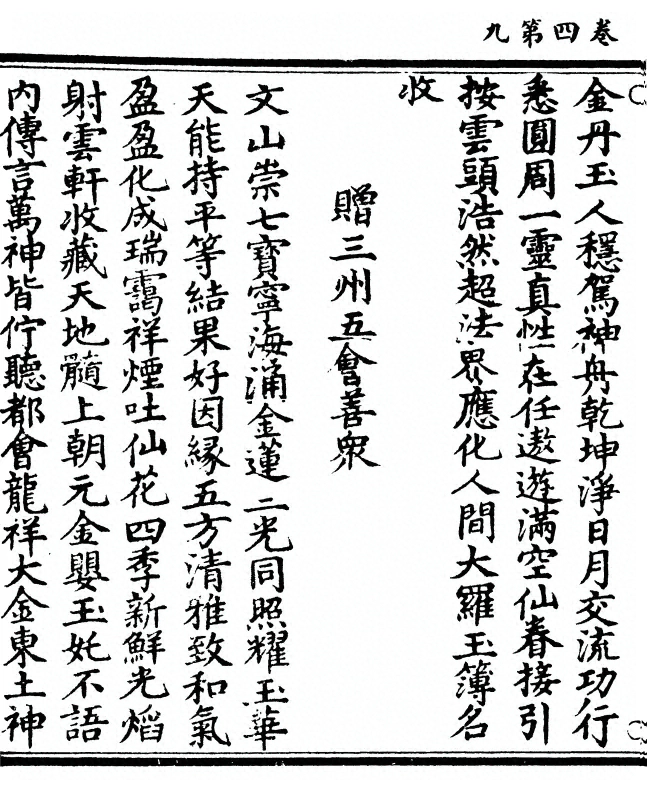 卷四第九
金丹玉人穩駕神舟乾坤淨日月交流功行
悉圓周一靈真性在任遨遊滿空仙眷接引
按雲頭浩然超法界應化人間大羅玉簿名
收
贈三州五會善衆
文山崇七寶寧海涌金蓮二光同照耀玉華
天能持平等結果好因緣五方清雅致和氣
盈盈化成瑞靄祥煙吐仙花四季新鮮光熖
射雲軒收藏天地髓上朝元金嬰玉奼不語
內傳言萬神皆佇聽都會龍祥大金東土神